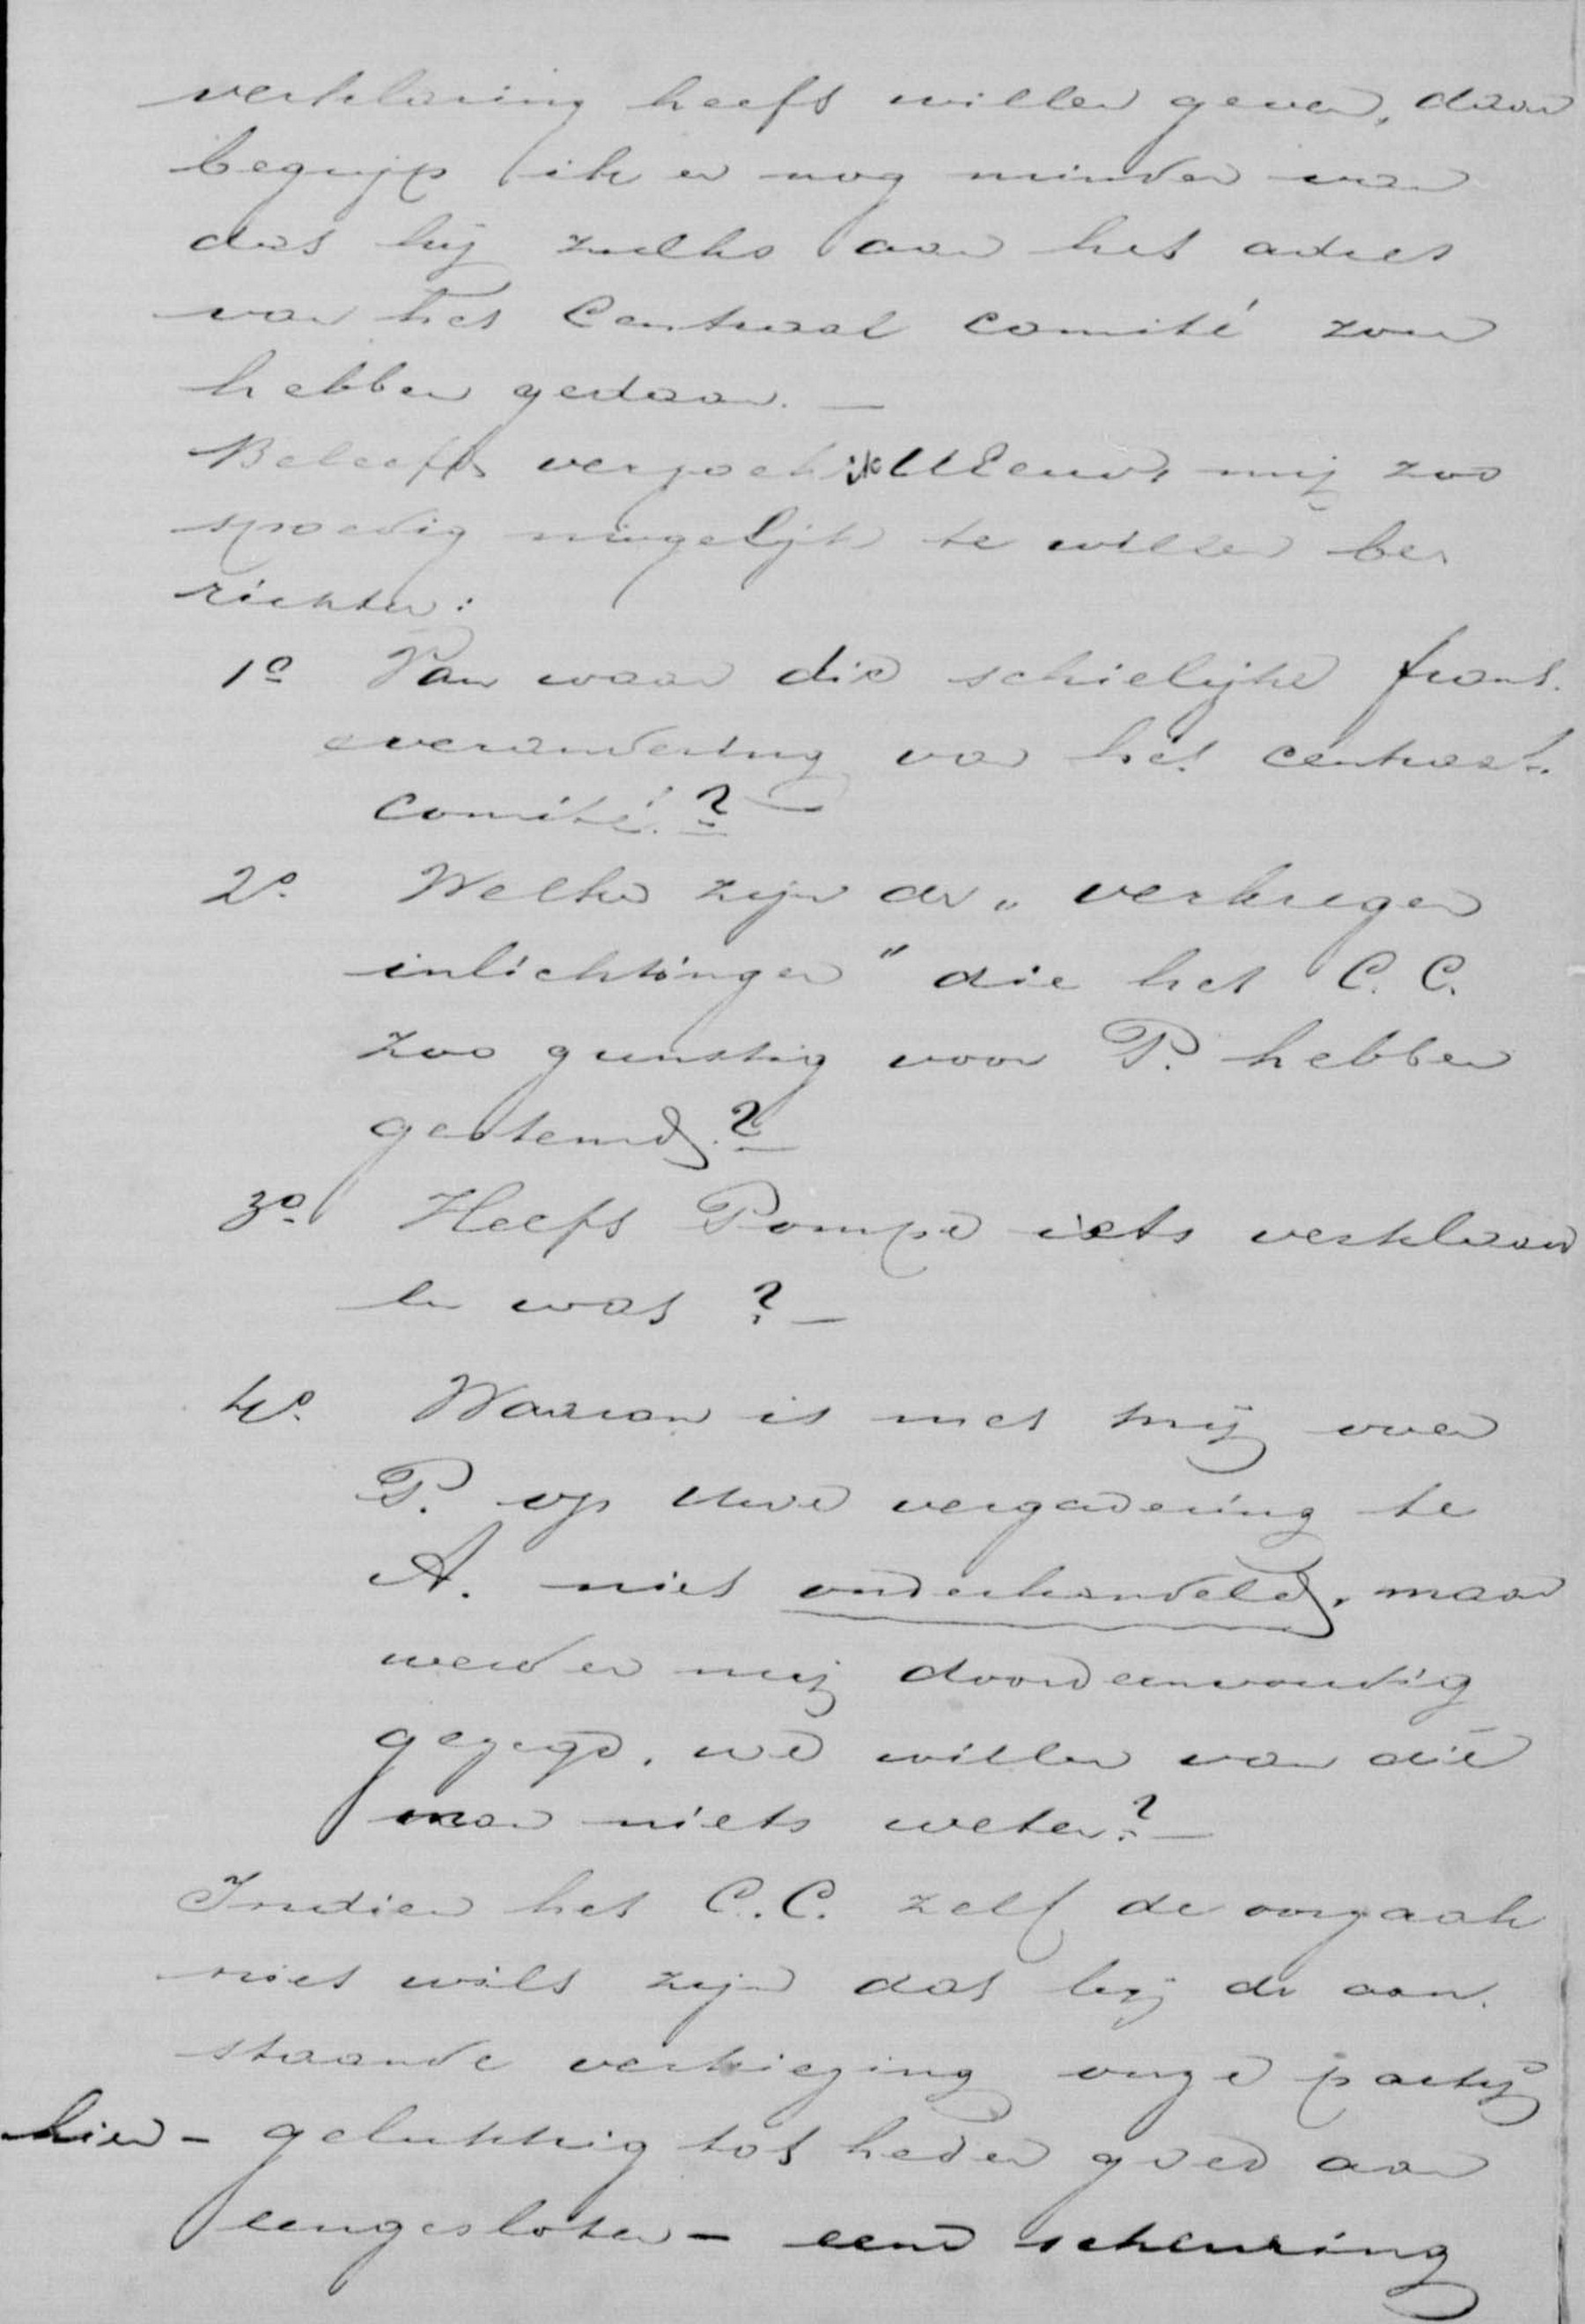 verklaring heeft willen geven, daar
begrijp ik er nog minder van
dat hij zulks aan het adres
van het Centraal comité zou
hebben gedaan. —
Beleefd verzoek ik UEeuw, mij zoo
spoedig mogelijk te willen be-
richten:
1º Van waar die schielijke front-
verandering van het centraal-
comité? —
2º Welke zijn de „verkregen
inlichtingen" die het C. C.
zoo gunstig voor P. hebben
gestemd? —
3º Heeft Pompe iets verklaard
en wat? —
4º Waarom is met mij over
P. op Uwe vergadering te
A. niet onderhandeld, maar
werd er mij doodeenvoudig
gezegd, we willen van die
man niets weten? —
Indien het C.C. zelf de oorzaak
niet wilt zijn dat bij de aan-
staande verkiezing onze partij
hier - gelukkig tot heden goed aan
eengesloten - eene scheuring